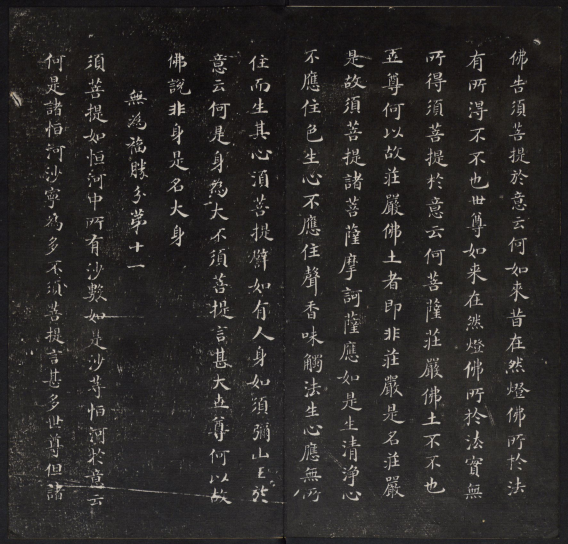 佛告須菩提於意云何如來昔在然燈佛所於法
有所得不不也世尊如來在然燈佛所於法實無
所得須菩提於意云何菩薩莊嚴佛土不不也
世尊何以故莊嚴佛土者即非莊嚴是名莊嚴
是故須菩提諸菩薩摩訶薩應如是生清淨心
不應住色生心不應住聲香味觸法生心應無所
住而生其心須菩提譬如有人身如須彌山王於
意云何是身為大不須菩提言甚大世尊何以故
佛說非身是名大身
無為福勝分第十一
須菩提如恒河中所有沙數如是沙等恒河於意云
何是諸恒河沙寧為多不須菩提言甚多世尊但諸